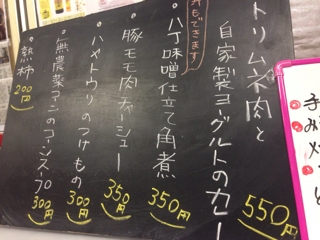 トリムネ肉と
自家製ヨーグルトのカレー
550円
丼もできます
八丁味噌仕立て角煮
350円
豚モモ肉チャーシュー
350円
ハヤトウリのつけもの
300円
無農薬コーンのコーンスープ
300円
熟柿
200円
手
み